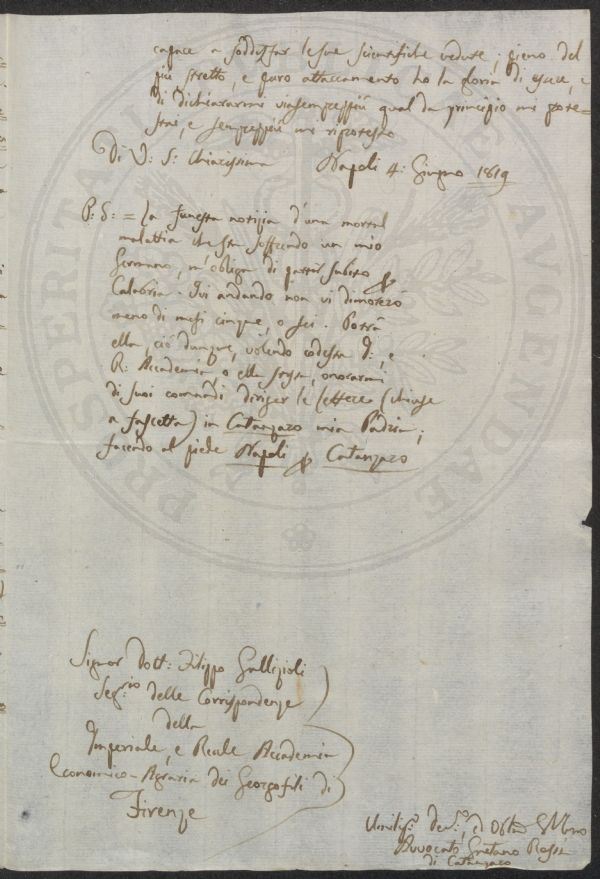 capace a soddisfar le sue scientifiche vedute; pieno del
più stretto, e puro attaccamento ho la gloria di essere, e
di dichiararmi viasempreppiù qual da principio mi prote=
stai, e sempreppiù mi riprotesto
Di V: S: Chiarissima Napoli 4: Giugno 1819
P: S: = La funesta notizia d'una mortal
malattia che sta soffrendo un mio
Germano, m'obliga di partir subito p
Calabria. Ivi andando non vi dimorerò
meno di mesi cinque, o sei. Potrà
ella ciò dunque, volendo codesta I:, e
R: Accademia, o ella stessa, onorarmi
di suoi comandi, diriger le lettere (chiuse
a fascetta) in Catanzaro mia Padria;
facendo al piede Napoli p Catanzaro
Signor Dott: Filippo Gallizioli
Segrio delle Corrispondenze
della
Imperiale, e Reale Accademia
Economico-Agraria dei Georgofili di
Firenze
Umiliso: devo:, ed
Avvocato Gaetano Rossi
di Catanzaro
PROSPERITATI PUBLICAE AUGENDAE